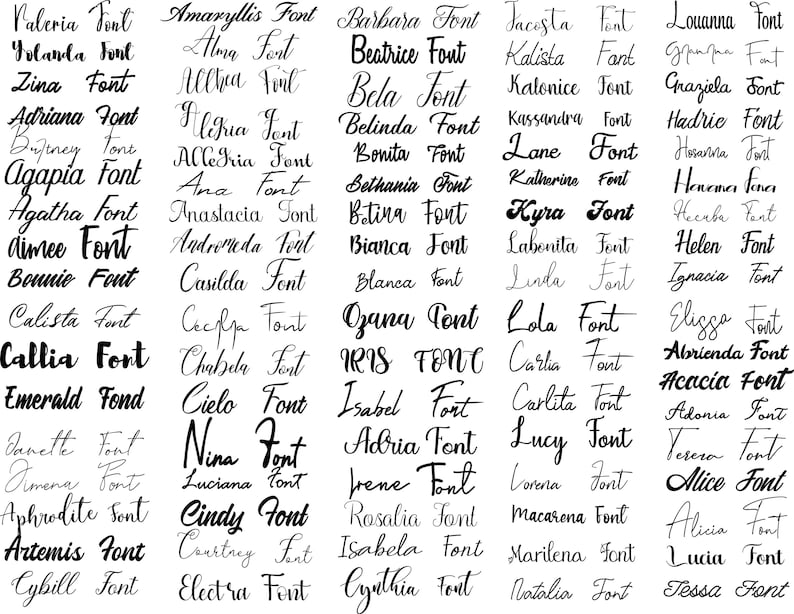 Valeria Font
Yolanda Font
Zina Font
Adriana Font
Britney Font
Agapia Font
Agatha Font
Aimee Font
Bonnie Font
Calista Font
Callia Font
Emerald Fond
Janette Font
Jimena Font
Aphrodite Font
Artemis Font
Cybill Font
Amaryllis Font
Alma Font
Allthea Font
Alegria Font
Allegria Font
Ana Font
Anastacia Font
Andromeda Font
Casilda Font
Cecylya Font
Chabela Font
Cielo Font
Nina Font
Luciana Font
Cindy Font
Courtney Font
Electra Font
Barbara Font
Beatrice Font
Bela Font
Belinda Font
Bonita Font
Bethania Font
Betina Font
Bianca Font
Blanca Font
Ozana Font
IRIS FONT
Isabel Font
Adria Font
Irene Font
Rosalia Font
Isabela Font
Cynthia Font
Jacosta Font
Kalista Font
Kalonice Font
Kassandra Font
Lane Font
Katherine Font
Kyra Font
Labonita Font
Linda Font
Lola Font
Carlia Font
Carlita Font
Lucy Font
Lorena Font
Macarena Font
Marilena Font
Natalia Font
Louanna Font
Font
Graziela Font
Hadrie Font
Hosanna Font
Havana Font
Hecuba Font
Helen Font
Ignacia Font
Elissa Font
Abrienda Font
Acacia Font
Adonia Font
Tereza Font
Alice Font
Alicia Font
Lucia Font
Tessa Font